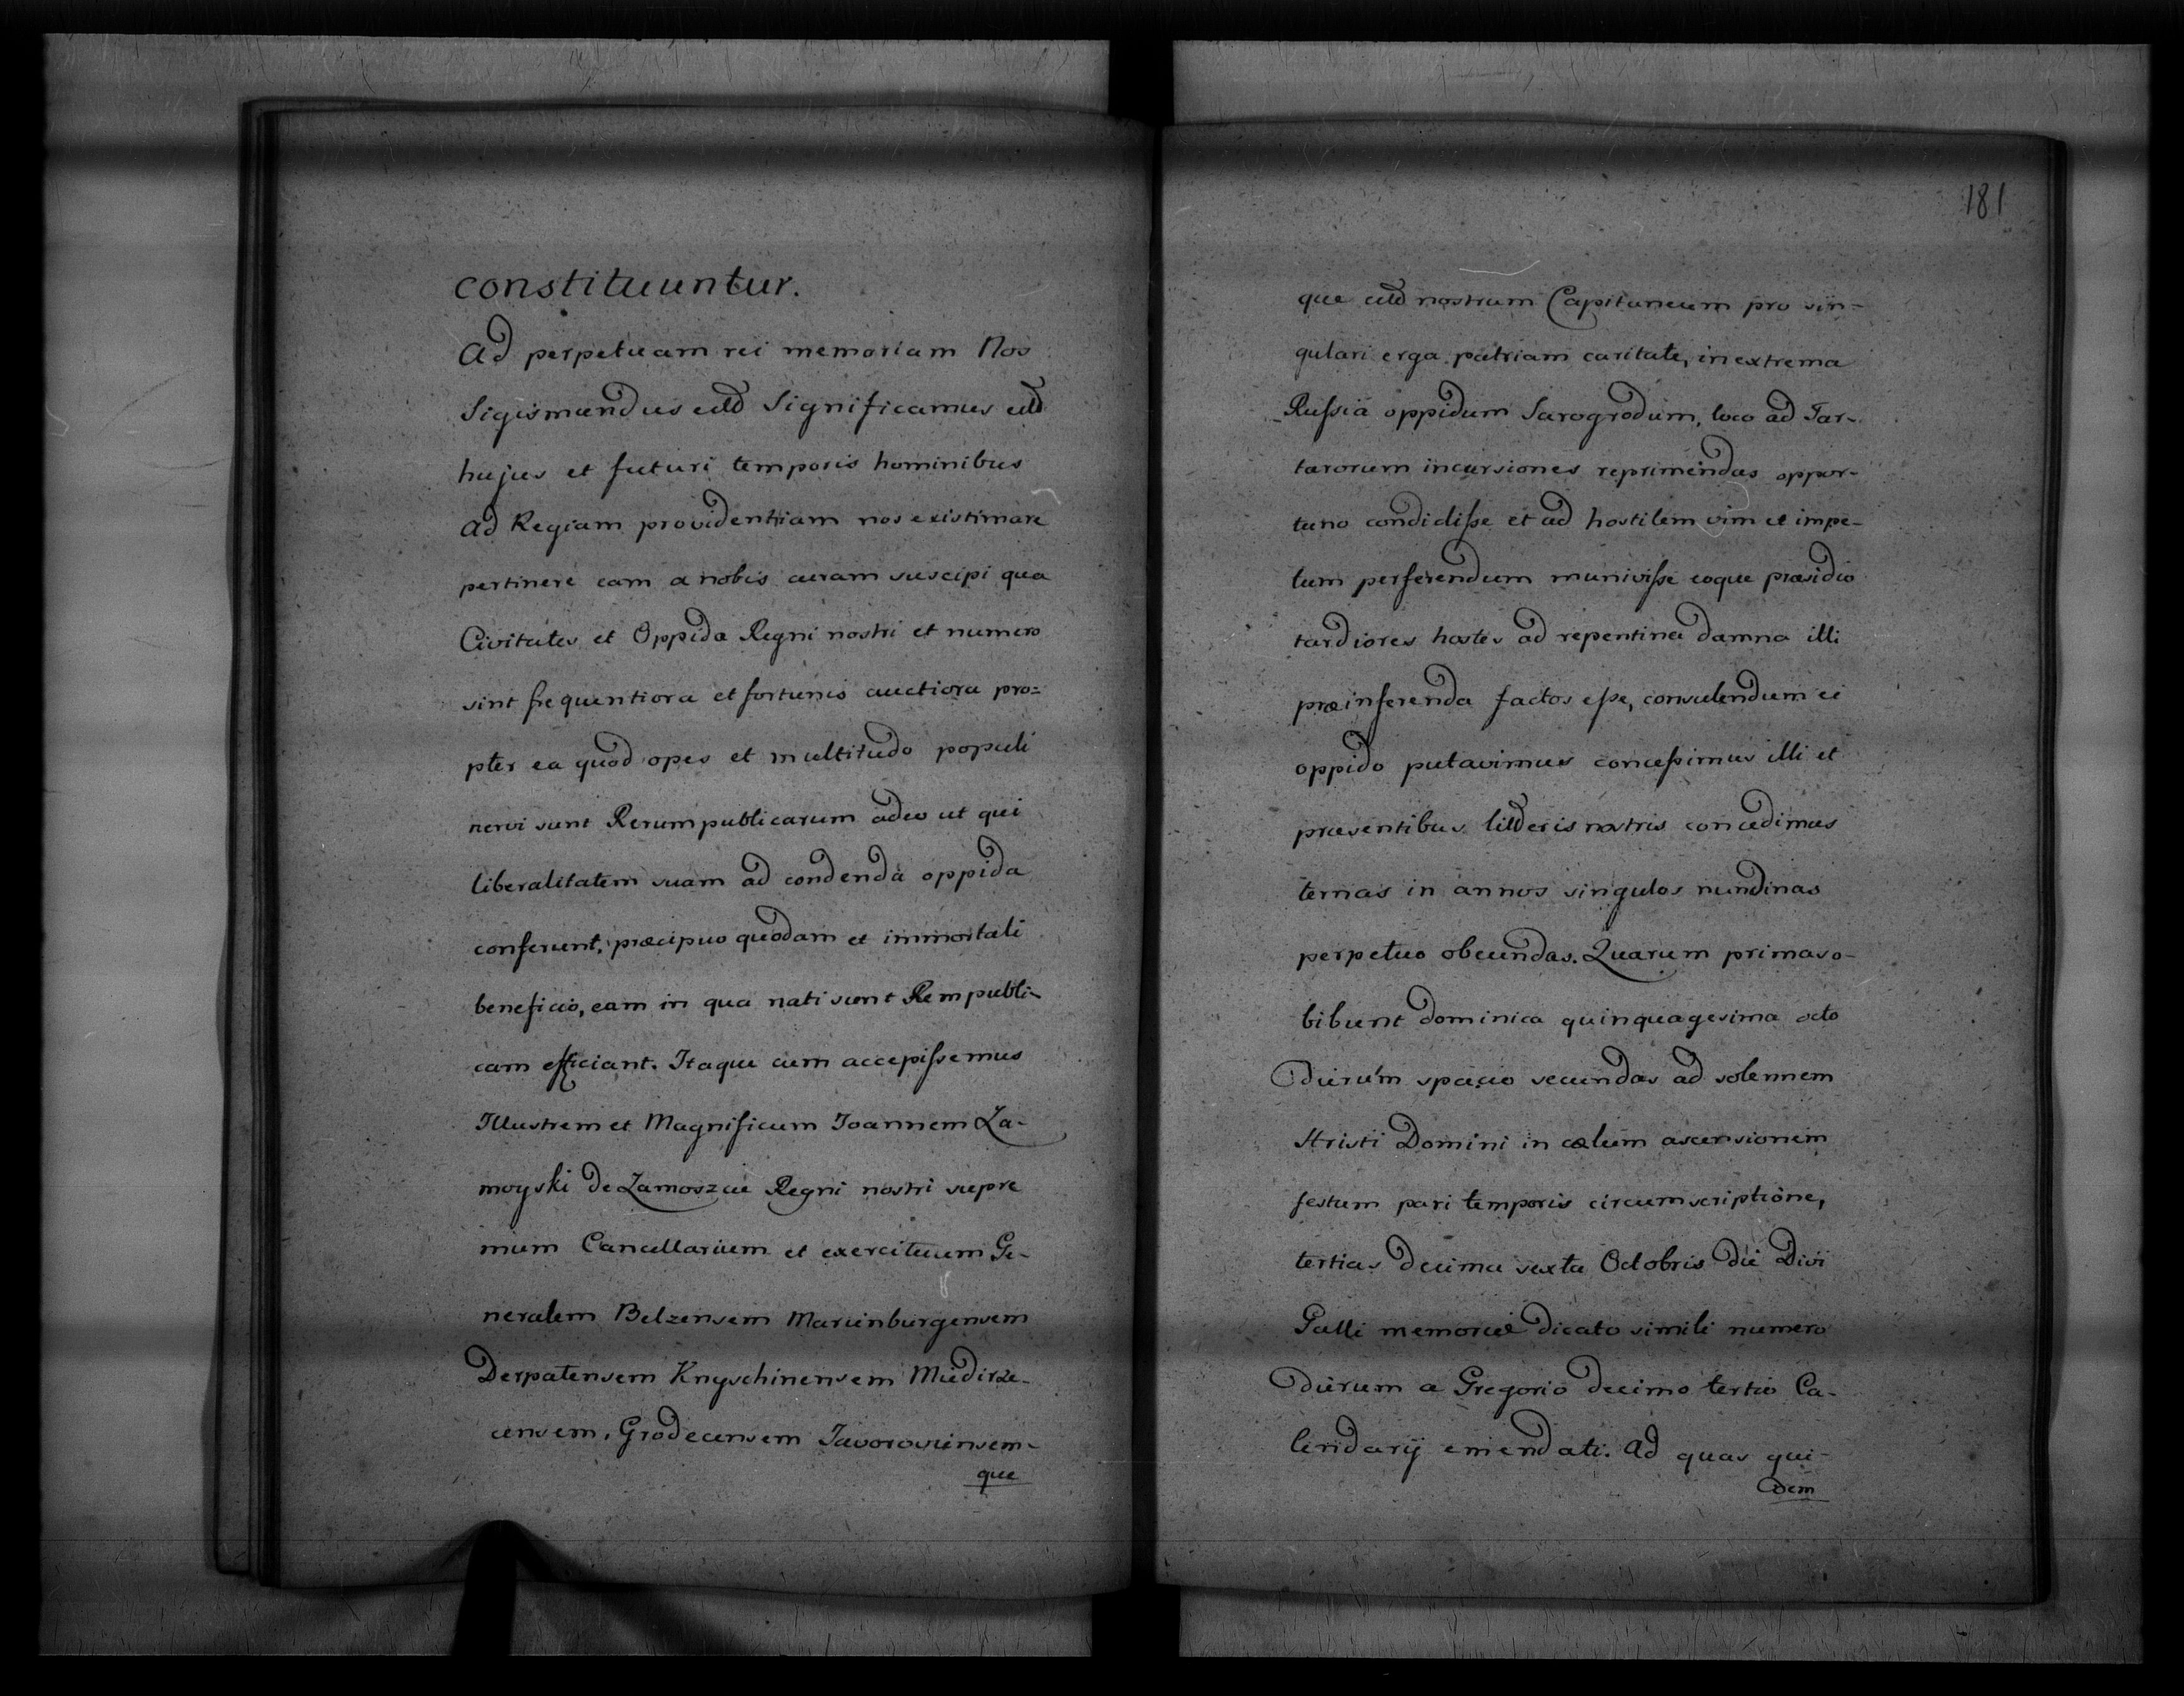 constituuntur.
Ad perpetuam rei memoriam Nos
Sigismundus etc Significamus etc
hujus et futuri temporis hominibus
Ad Regiam providentiam nos existimare
pertinere eam a nobis curam suscipi qua
Civitates et Oppida Regni nostri et numero
sint frequentiora et fortunis auctiora pro=
pter ea quod opes et multitudo populi
nervi sunt Rerumpublicarum adeo ut qui
liberalitatem suam ad condenda oppida
conferunt, præcipuo quodam et immortali
beneficio, eam in qua nati sunt Rempubli-
cam efficiant. Itaque cum accepissemus
Illustrem et Magnificum Joannem Za-
moyski de Zamoszcie Regni nostri supre
mum Cancellarium et exercituum Ge-
neralem Belzensem Marienburgensem
Derpatensem Knyschinensem Miedirze-
censem, Grodecensem Javoroviensem-
que
181
que etc nostrum Capitaneum pro sin-
gulari erga patriam caritate, in extrema
Russia oppidum Sarogrodum, loco ad Tar-
tarorum incursiones reprimendas oppor-
tuno condidisse et ad hostilem vim et impe-
tum perferendum munivisse eoque præsidio
tardiores hostes ad repentina damna illi
præinferenda factos esse, consulendum ei
oppido putavimus concessimus illi et
præsentibus litteris nostris concedimus
ternas in annos singulos nundinas
perpetuo obeundas. Quarum primas o-
bibunt dominica quinquagesima octo
dierum spacio secundas ad solennem
Christi Domini in cælum ascensionem
festum pari temporis circumscriptione,
tertias decima sexta Octobris die Divi
Galli memoriæ dicato simili numero
dierum a Gregorio decimo tertio Ca-
lendarij emendati. Ad quas qui-
dem